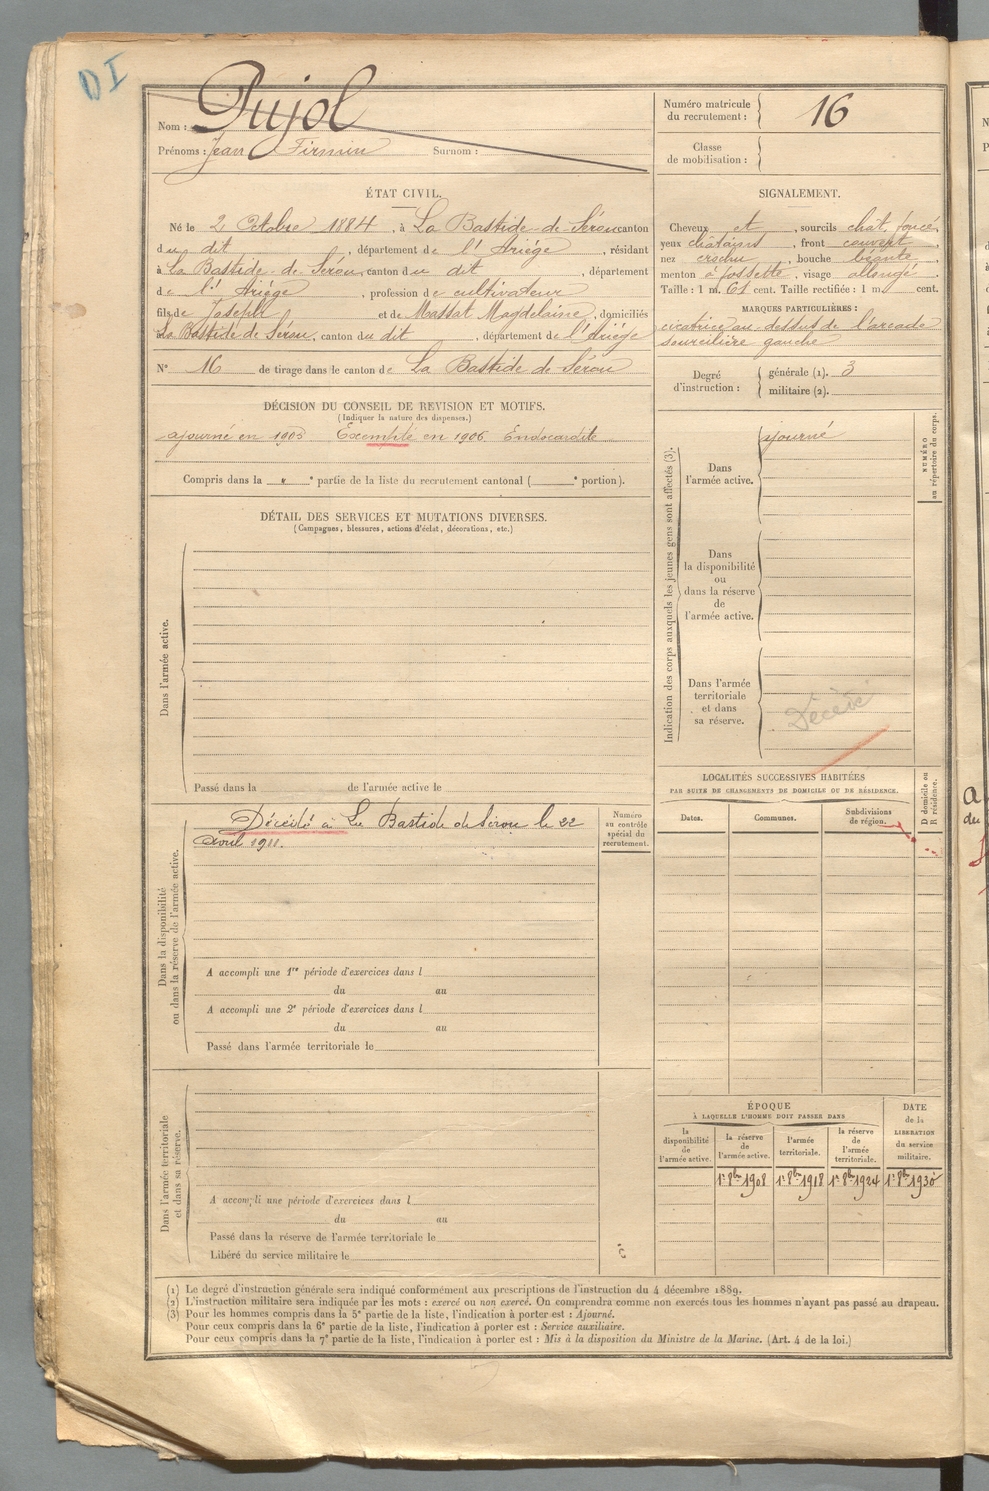 DI
Nom : Pujol
Prénoms : Jean Firmin Surnom :
Numéro matricule du recrutement : 16
Classe de mobilisation :
ÉTAT CIVIL.
Né le 2 Octobre 1884, à La Bastide-de-Sérou canton
du dit, département de l'Ariège, résidant
à La Bastide-de-Sérou, canton du dit, département
de l'Ariège, profession de cultivateur
fils de Joseph et de Massat Magdelaine, domiciliés
La Bastide de Sérou, canton du dit, département de l'Ariége
N° 16 de tirage dans le canton de La Bastide de Sérou
SIGNALEMENT.
Cheveux et, sourcils chat. foncé,
yeux châtains, front couvert,
nez crochu, bouche béante,
menton à fossette, visage allongé.
Taille : 1 m. 61 cent. Taille rectifiée : 1 m. cent.
MARQUES PARTICULIÈRES :
cicatrice au-dessus de l'arcade
sourcilière gauche
Degré d'instruction :
générale (1). 3
militaire (2).
DÉCISION DU CONSEIL DE REVISION ET MOTIFS.
(Indiquer la nature des dispenses.)
ajourné en 1905 Exempté en 1906. Endocardite
Compris dans la " e partie de la liste du recrutement cantonal ( e portion).
DÉTAIL DES SERVICES ET MUTATIONS DIVERSES.
(Campagnes, blessures, actions d'éclat, décorations, etc.)
Dans l'armée active.
Passé dans la de l'armée active le
Indication des corps auxquels les jeunes gens sont affectés (3).
Dans l'armée active.
ajourné
Dans la disponibilité ou dans la réserve de l'armée active.
Dans l'armée territoriale et dans sa réserve.
Décédé
NUMÉRO au répertoire du corps.
LOCALITÉS SUCCESSIVES HABITÉES
PAR SUITE DE CHANGEMENTS DE DOMICILE OU DE RÉSIDENCE.
Dates. Communes. Subdivisions de région.
D domicile ou R résidence.
Dans la disponibilité ou dans la réserve de l'armée active.
Décédé à La Bastide de Sérou le 22
Avril 1911.
Numéro au contrôle spécial du recrutement.
A accompli une 1re période d'exercices dans l
du au
A accompli une 2e période d'exercices dans l
du au
Passé dans l'armée territoriale le
Dans l'armée territoriale et dans sa réserve.
A accompli une période d'exercices dans l
du au
Passé dans la réserve de l'armée territoriale le
Libéré du service militaire le
ÉPOQUE
À LAQUELLE L'HOMME DOIT PASSER DANS
la disponibilité de l'armée active.
la réserve de l'armée active.
l'armée territoriale.
la réserve de l'armée territoriale.
DATE de la LIBÉRATION du service militaire.
1er 8bre 1908 1er 8bre 1918 1er 8bre 1924 1er 8bre 1930
(1) Le degré d'instruction générale sera indiqué conformément aux prescriptions de l'instruction du 4 décembre 1889.
(2) L'instruction militaire sera indiquée par les mots : exercé ou non exercé. On comprendra comme non exercés tous les hommes n'ayant pas passé au drapeau.
(3) Pour les hommes compris dans la 5e partie de la liste, l'indication à porter est : Ajourné.
Pour ceux compris dans la 6e partie de la liste, l'indication à porter est : Service auxiliaire.
Pour ceux compris dans la 7e partie de la liste, l'indication à porter est : Mis à la disposition du Ministre de la Marine. (Art. 4 de la loi.)